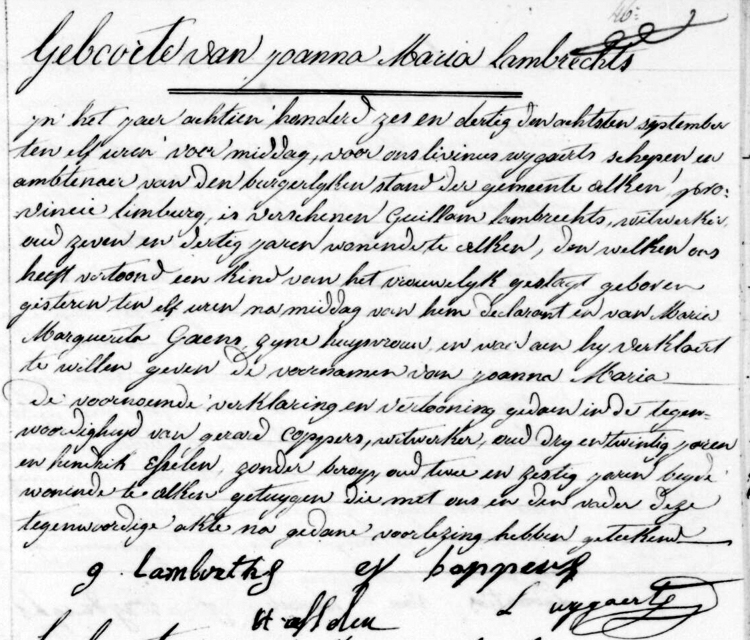 Geboorte van joanna Maria Lambrechts
yn het jaer achtien honderd zes en dertig den achtsten september
ten elf uren voor middag, voor ons livinus wygaerts schepen en
ambtenaer van den burgerlyken stand der gemeente alken, pro-
vincie limburg, is verschenen Guillam lambrechts, witwerker,
oud zeven en dertig jaren wonende te alken, den welken ons
heeft vertoond een kind van het vrouwelyk geslagt geboren
gisteren ten elf uren na middag van hem declarant en van Maria
Marguerita Gaens zyne huysvrouw, en waer aen hy verklaert
te willen geven de voornamen van joanna Maria
de voornoemde verklaring en vertooning gedaen in de tegen-
woordigheyd van gerard Coppers, witwerker, oud dry en twintig jaren
en hendrik zonder beroep oud twee en zestig jaren beyde
wonende te alken getuygen die met ons en den vader deze
tegenwoordige akte na gedane voorlezing hebben geteekend
g. Lambrechs Coppers
H L wygaerts